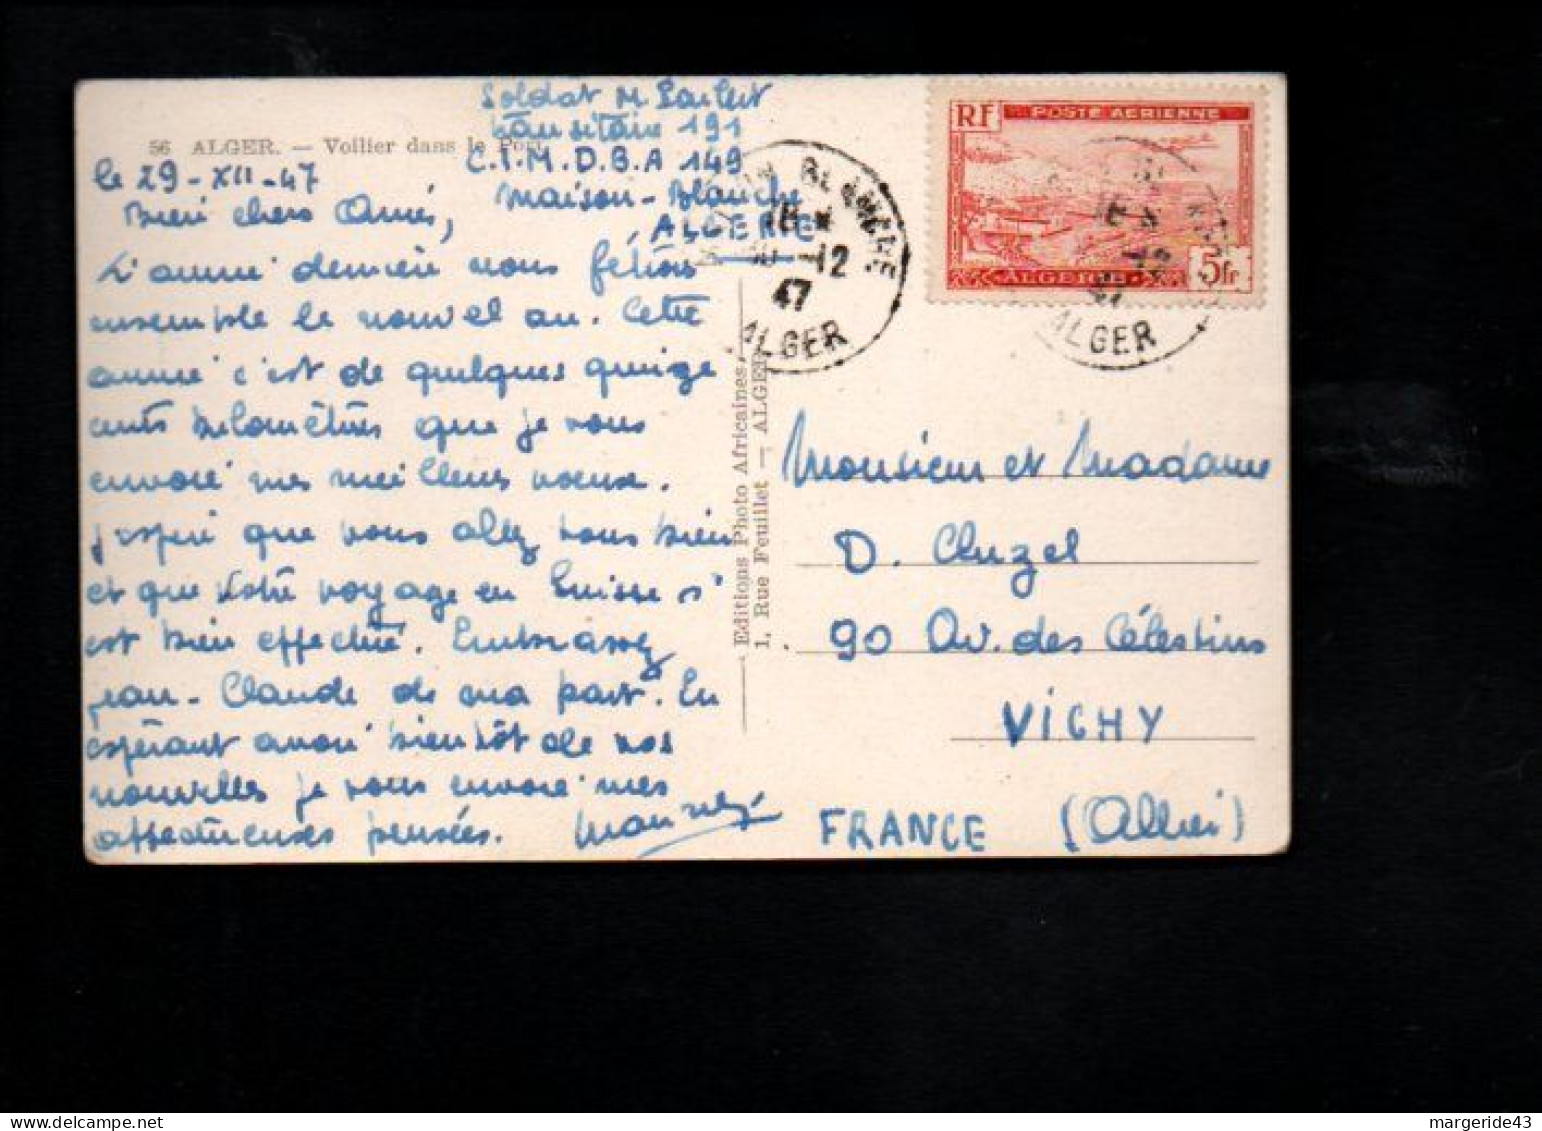 56 ALGER. — Voilier dans le Port
Soldat M
Sanitaire 191
C.I.M.D.B.A 149
Maison-Blanche
ALGERIE
le 29-XII-47
Bien chers Amis,
L'année dernière nous fêtions
ensemble le nouvel an. Cette
année c'est de quelques quinze
cents kilomètres que je vous
envoie mes meilleurs voeux.
J'espère que vous allez tous bien
et que votre voyage en Suisse s'
est bien effectué. Embrassez
Jean-Claude de ma part. En
espérant avoir bientôt de vos
nouvelles je vous envoie mes
affectueuses pensées.
Editions Photo Africaines
1, Rue Feuillet — ALGER
BLANCHE
18 *
30-12
47
ALGER
RF POSTE AERIENNE
ALGERIE 5fr
ALGER
Monsieur et Madame
D. Cluzel
90 Av. des Célestins
VICHY
FRANCE (Allier)
margeride43